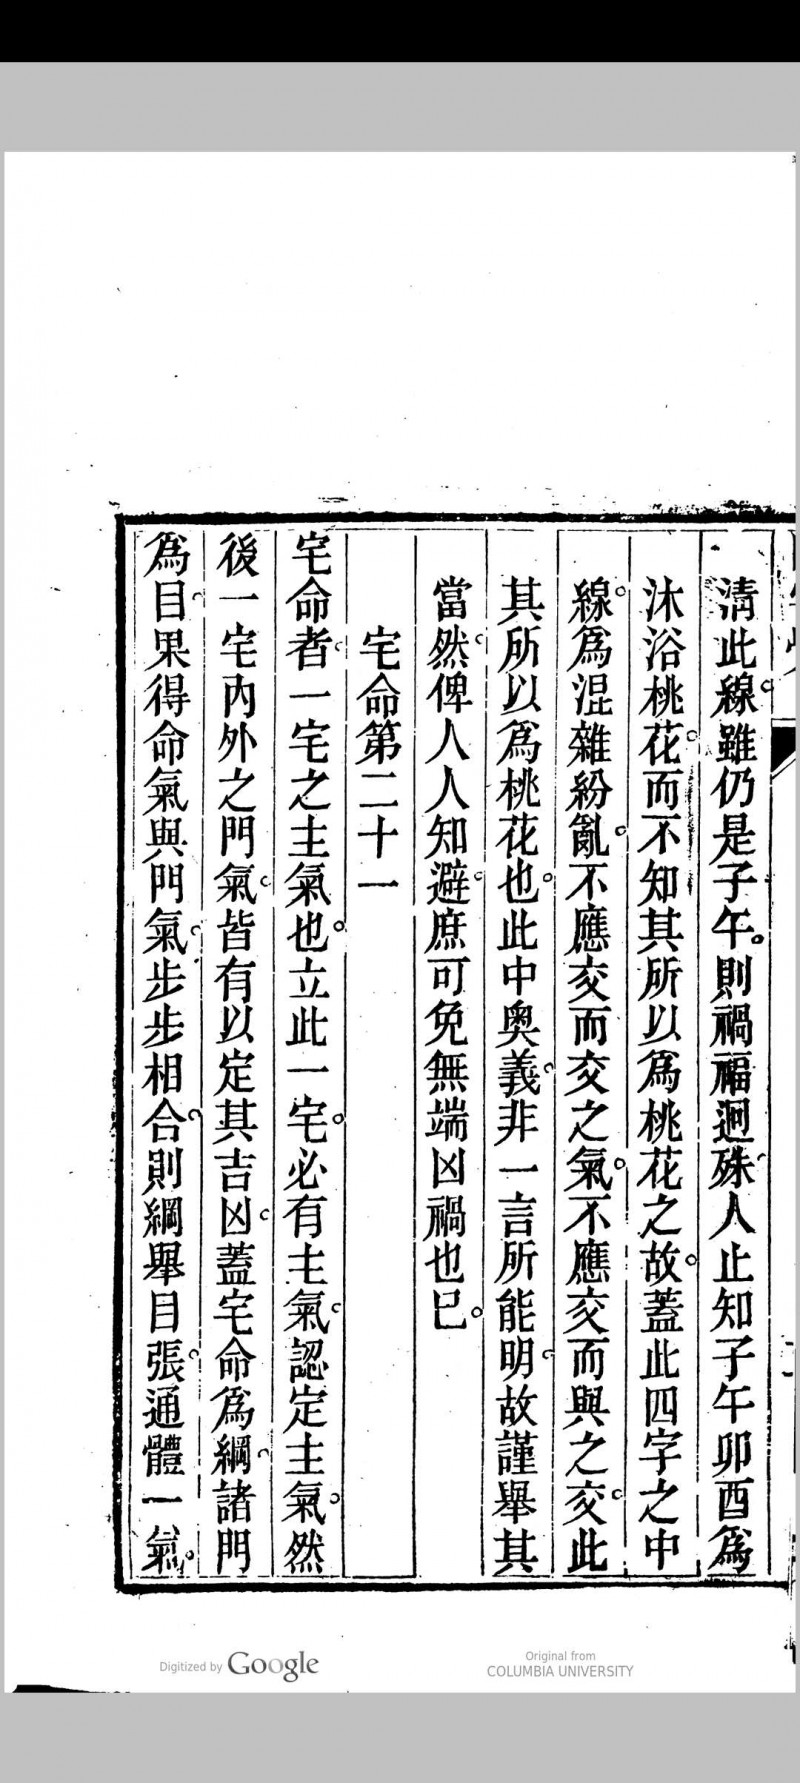 清此線雖仍是子午則禍福迥殊人止知子午卯酉爲
沐浴桃花而不知其所以爲桃花之故蓋此四字之中
線爲混雜紛亂不應交而交之氣不應交而與之交此
其所以爲桃花也此中奥義非一言所能明故謹舉其
當然俾人人知避庶可免無端凶禍也已
宅命第二十一
宅命者一宅之主氣也立此一宅必有主氣認定主氣然
後一宅內外之門氣皆有以定其吉凶蓋宅命爲綱諸門
爲目果得命氣與門氣步步相合則綱舉目張通體一氣
Digitized by Google
Original from
COLUMBIA UNIVERSITY